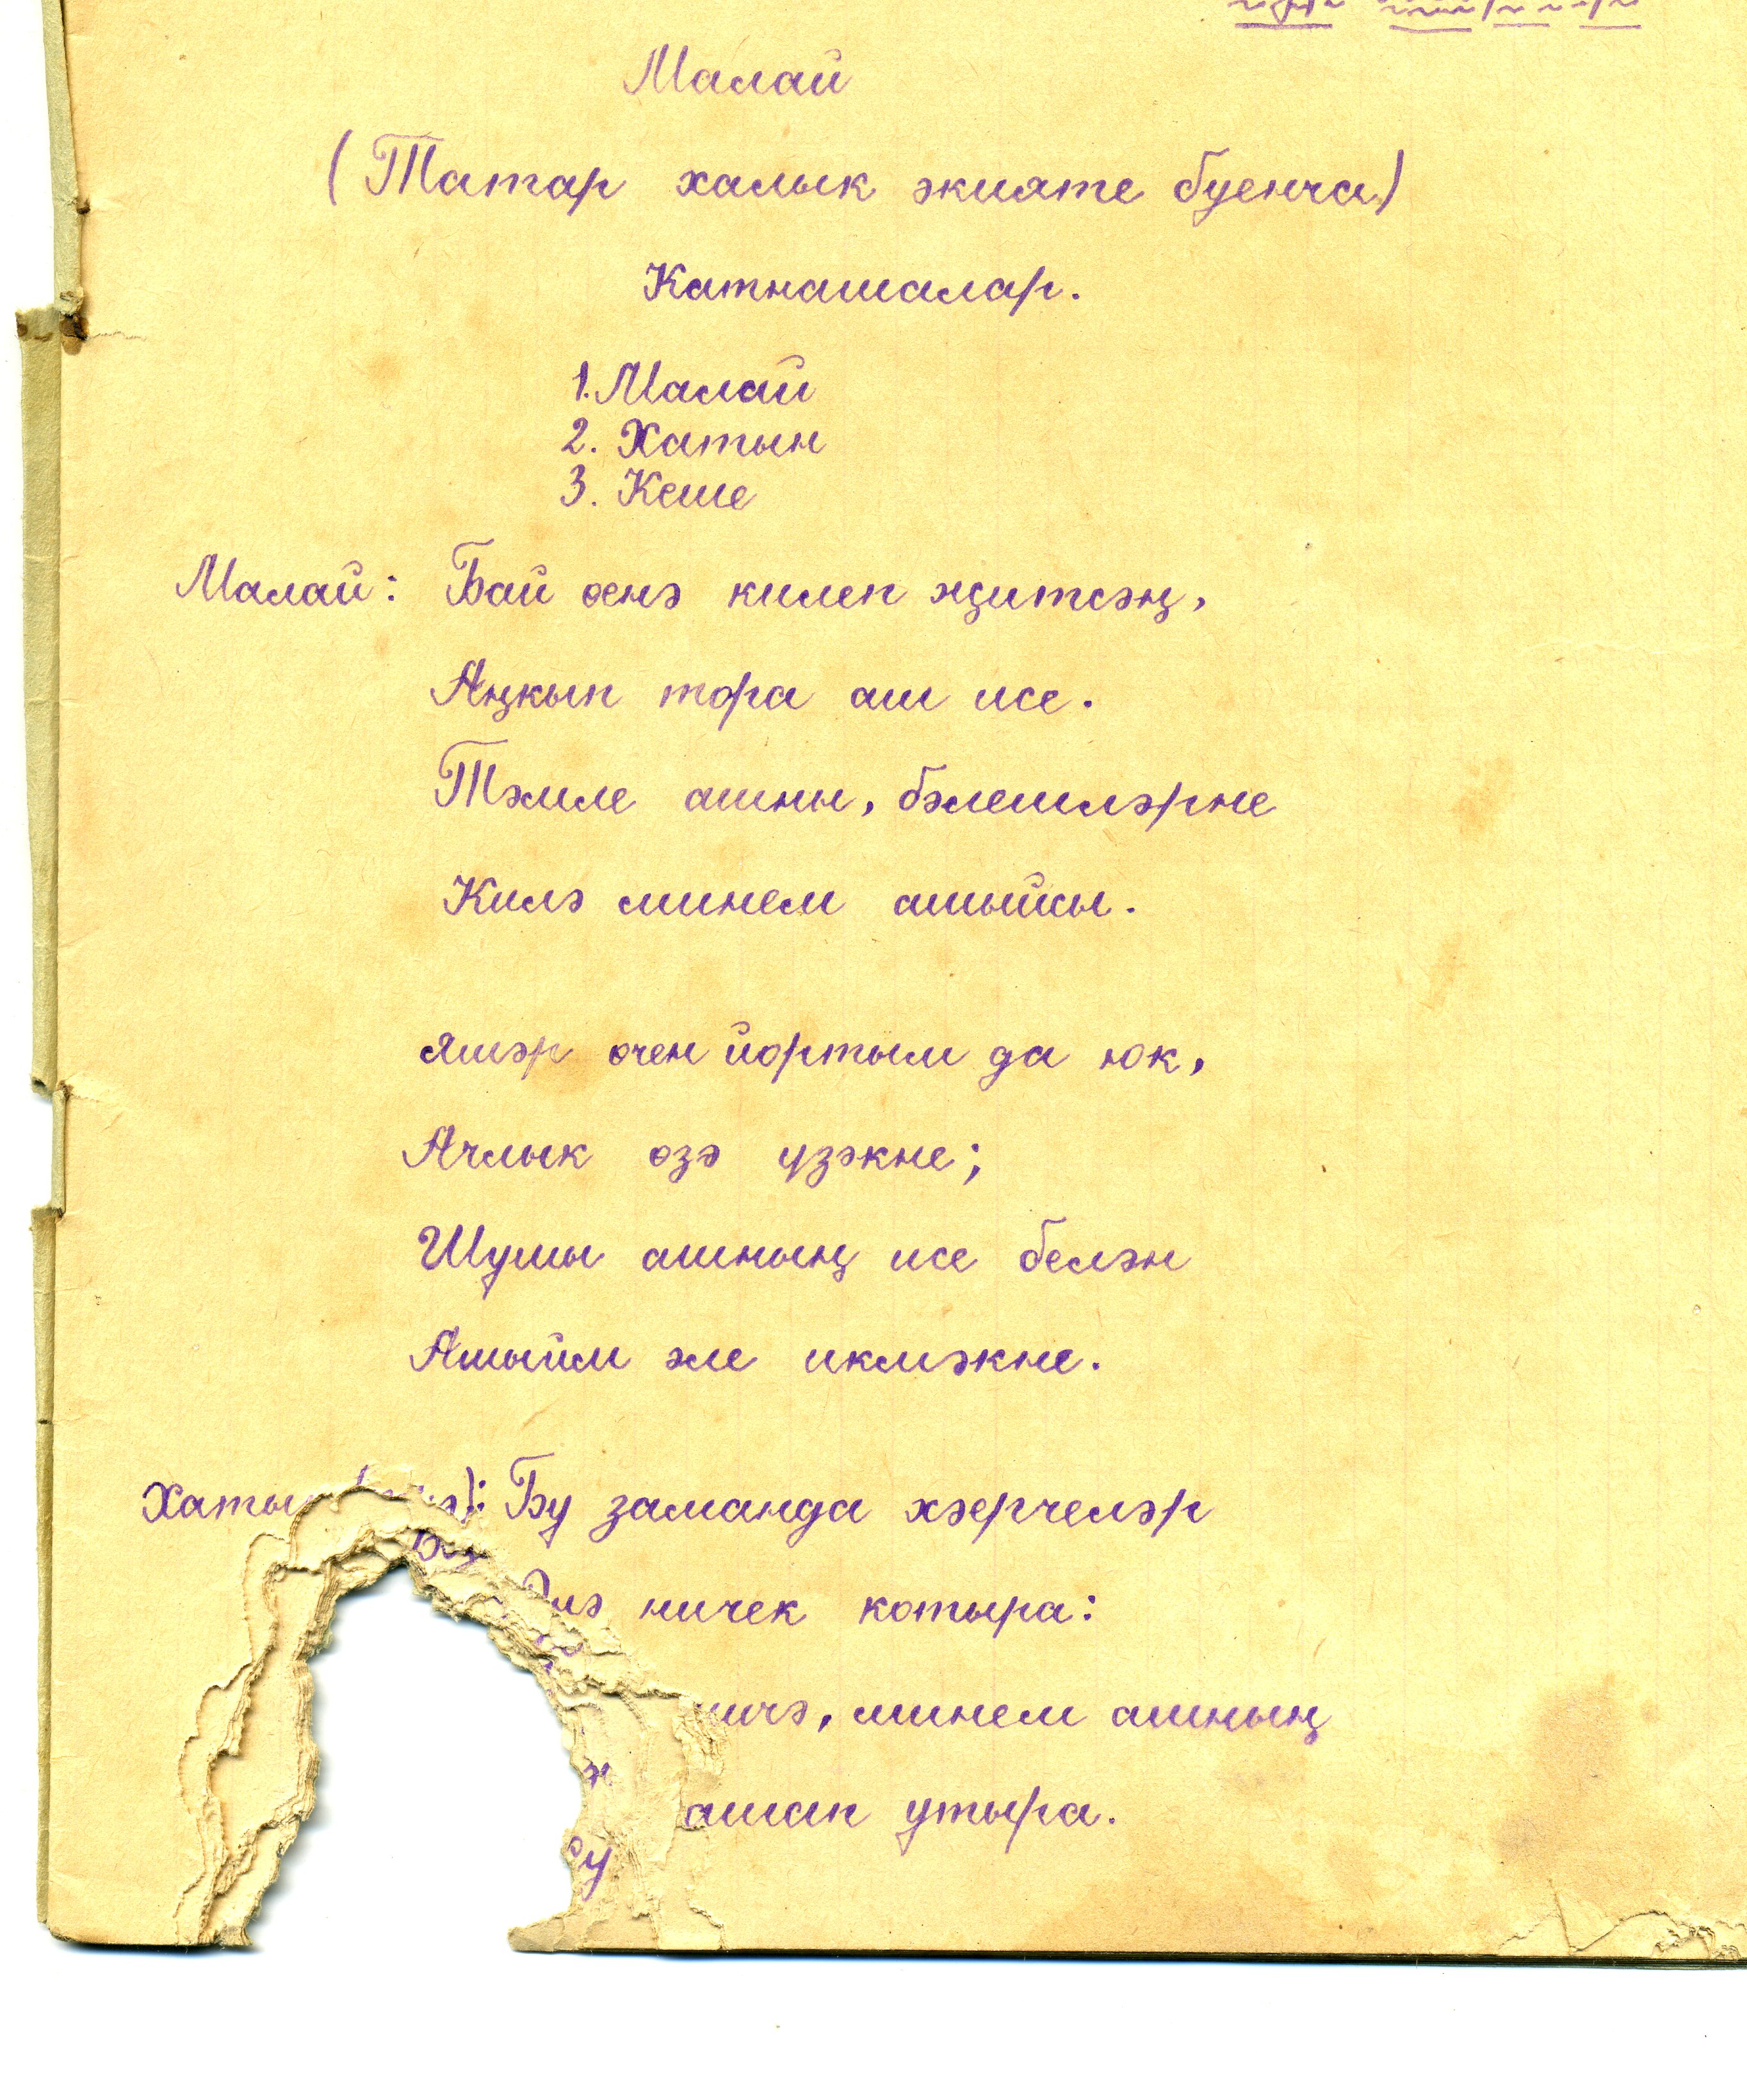 Малай
(Татар халык әкияте буенча)
Катнашалар.
1. Малай
2. Хатын
3. Кеше
Малай: Бай өенә килеп җитсәң,
Аңкып тора аш исе.
Тәмле ашны, бәлешләрне
Килә минем ашыйсы.
Яшәр өчен йортым да юк,
Ачлык өзә үзәкне;
Шушы ашның исе белән
Ашыйм әле икмәкне.
Бу заманда хәерчеләр
ничек котыра:
минем ашның
ашап утыра.